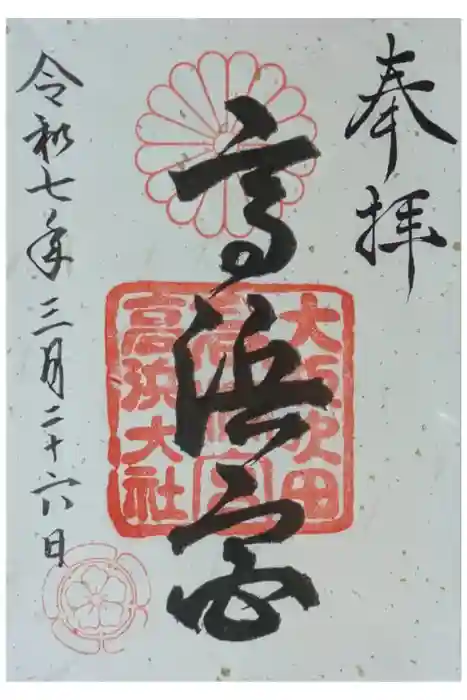 奉拝
高浜宮
大阪吹田
高浜大社
令和七年三月二十六日